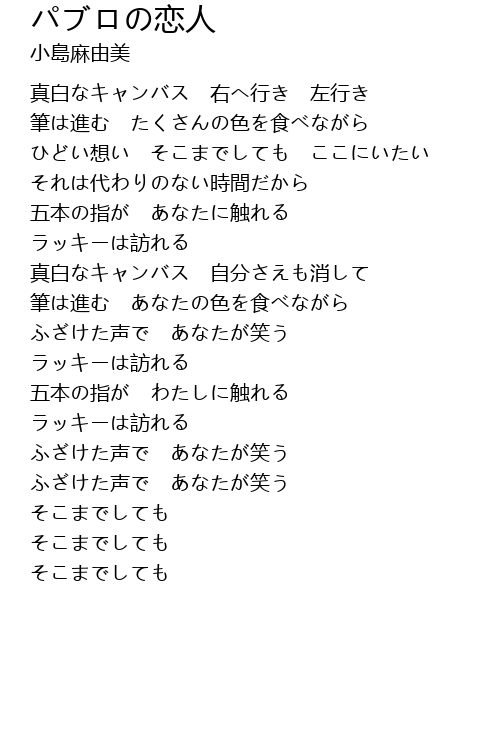 パブロの恋人
小島麻由美
真白なキャンバス　右へ行き　左行き
筆は進む　たくさんの色を食べながら
ひどい想い　そこまでしても　ここにいたい
それは代わりのない時間だから
五本の指が　あなたに触れる
ラッキーは訪れる
真白なキャンバス　自分さえも消して
筆は進む　あなたの色を食べながら
ふざけた声で　あなたが笑う
ラッキーは訪れる
五本の指が　わたしに触れる
ラッキーは訪れる
ふざけた声で　あなたが笑う
ふざけた声で　あなたが笑う
そこまでしても
そこまでしても
そこまでしても